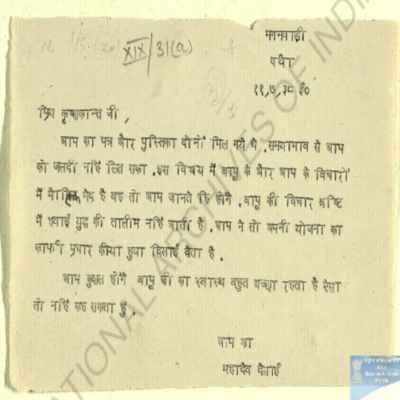 XIX/31(a)
मगनवाड़ी
वर्धा
११,७,३८ ई०
प्रिय कृष्णकान्त जी,
आप का पत्र और पुस्तिका दोनों मिल गये थे. समयाभाव से आप
को जलदी नहिं लिख सका. इस विषय में बापू के और आप के विचारों
में मौलिक भेद है यह तो आप जानते हि होंगे. बापू की विचार श्रेष्टि
में हवाई युद्ध की तालीम नहिं आती है. आप ने तो अपनी योजना का
काफी प्रचार कीया हुआ दिखाई देता है.
आप कुशल होंगे बापू जी का स्वास्थ्य बहुत अच्छा रहता है ऐसा
तो नहिं कह सकता हुं.
आप का
महादेव देसाई
NATIONAL ARCHIVES OF INDIA